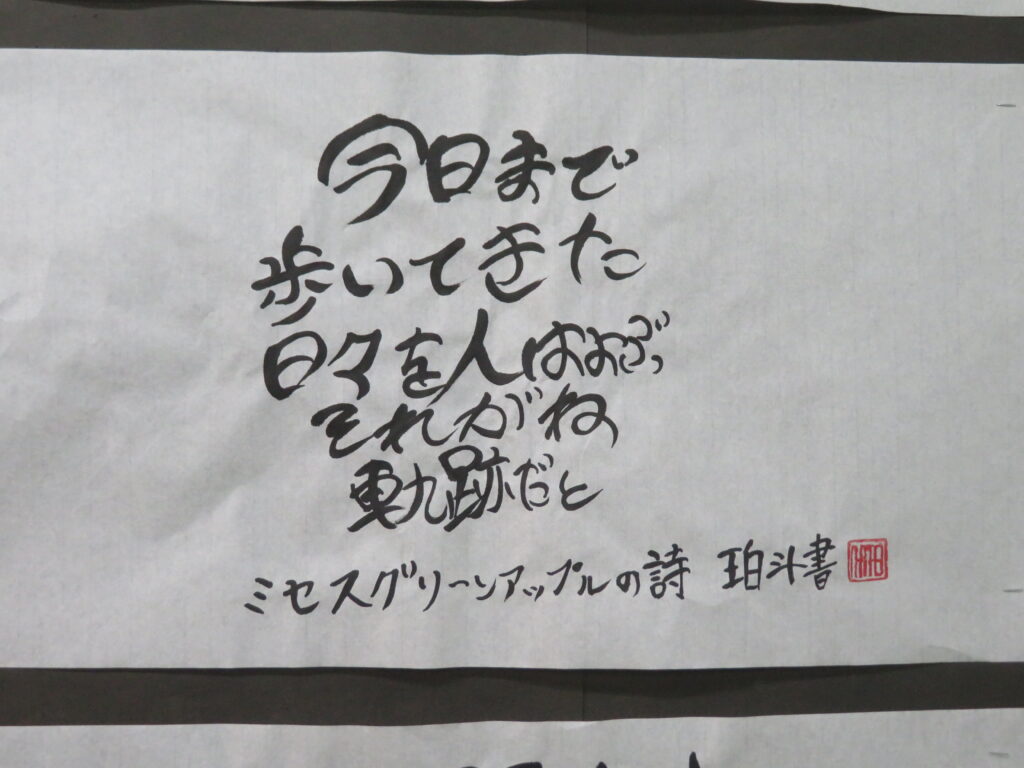 今日まで
歩いてきた
日々を人はよぶ
それがね
軌跡だと
ミセスグリーンアップルの詩 珀斗書